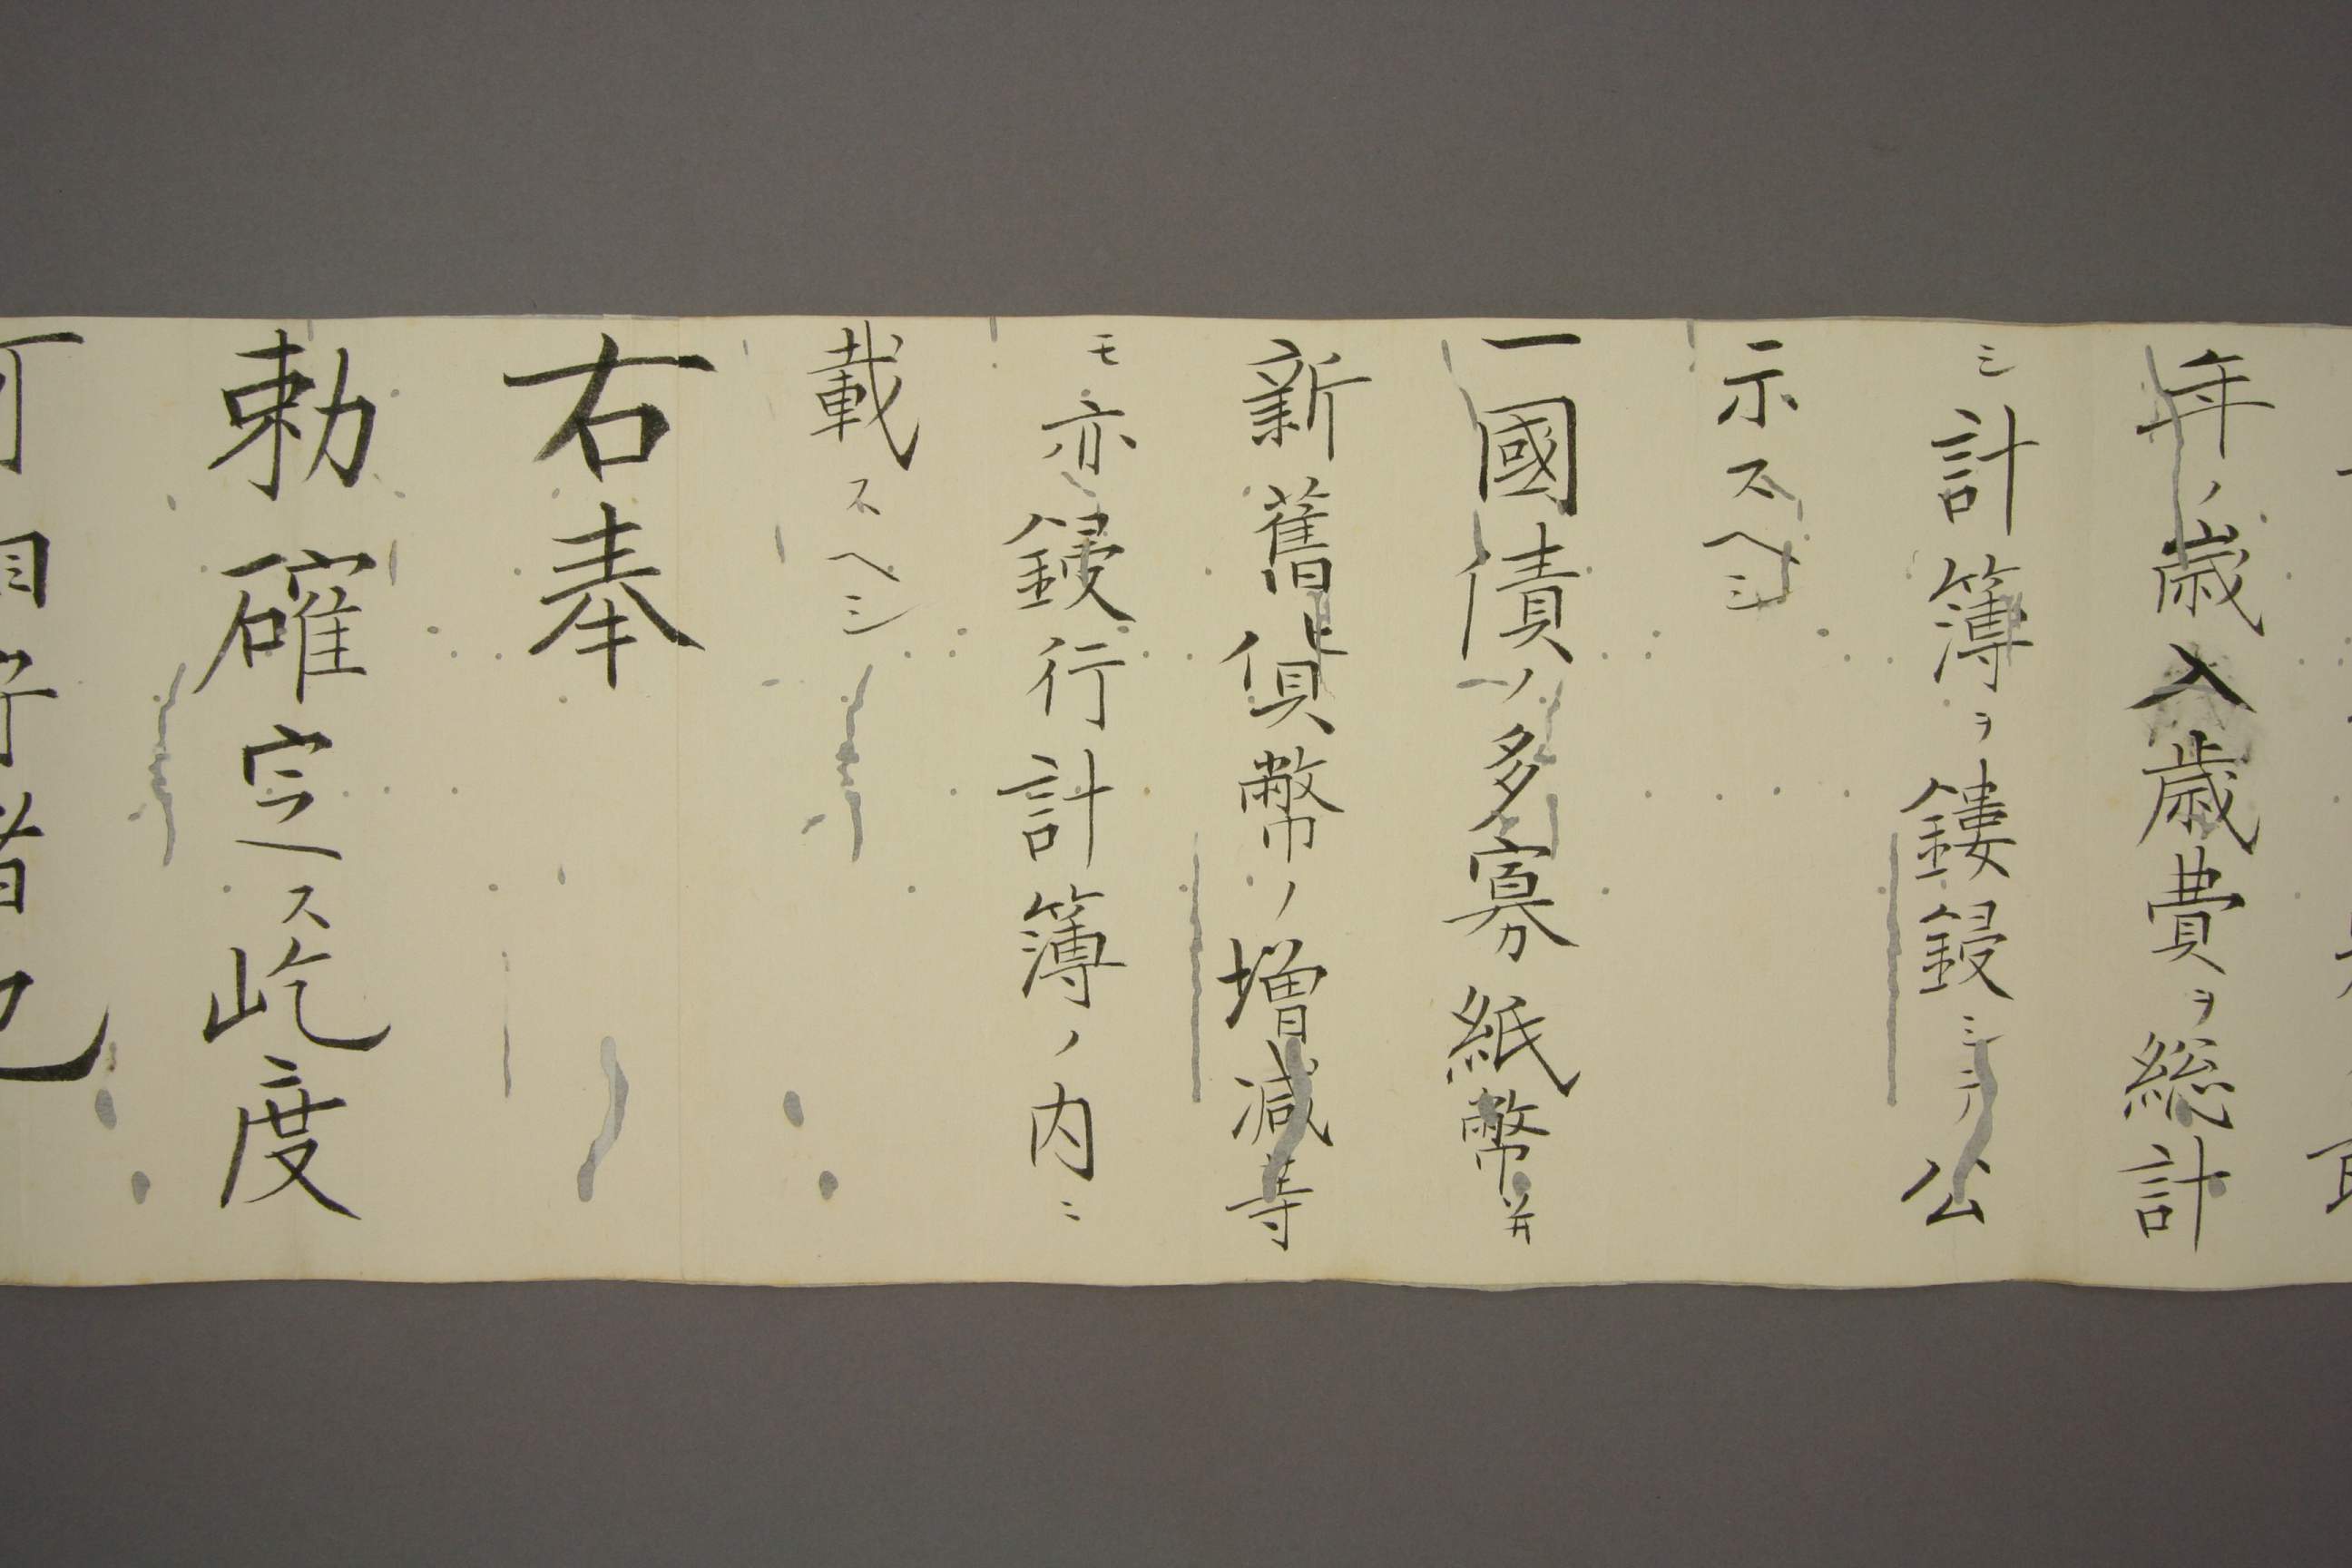 年ノ歳入歳費ヲ總計
シ計簿ヲ鏤鋟シテ公
示スヘシ
一國債ノ多寡紙幣并
新舊貨幣ノ增減等
モ亦鋟行計簿ノ内ニ
載スヘシ
右奉
勅確定ス屹度
可相守者也